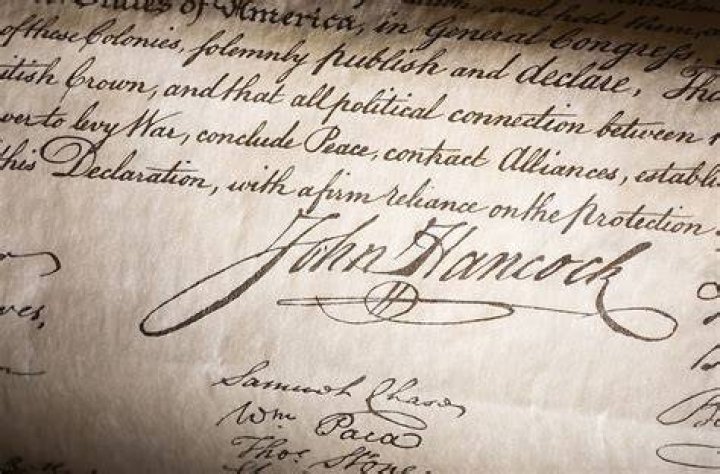 States of America, in General Congress,
of these Colonies, solemnly publish and declare, That
British Crown, and that all political connection between
Power to levy War, conclude Peace, contract Alliances, establish
this Declaration, with a firm reliance on the Protection
John Hancock
Samuel Chase
Wm Paca
Thos. Stone